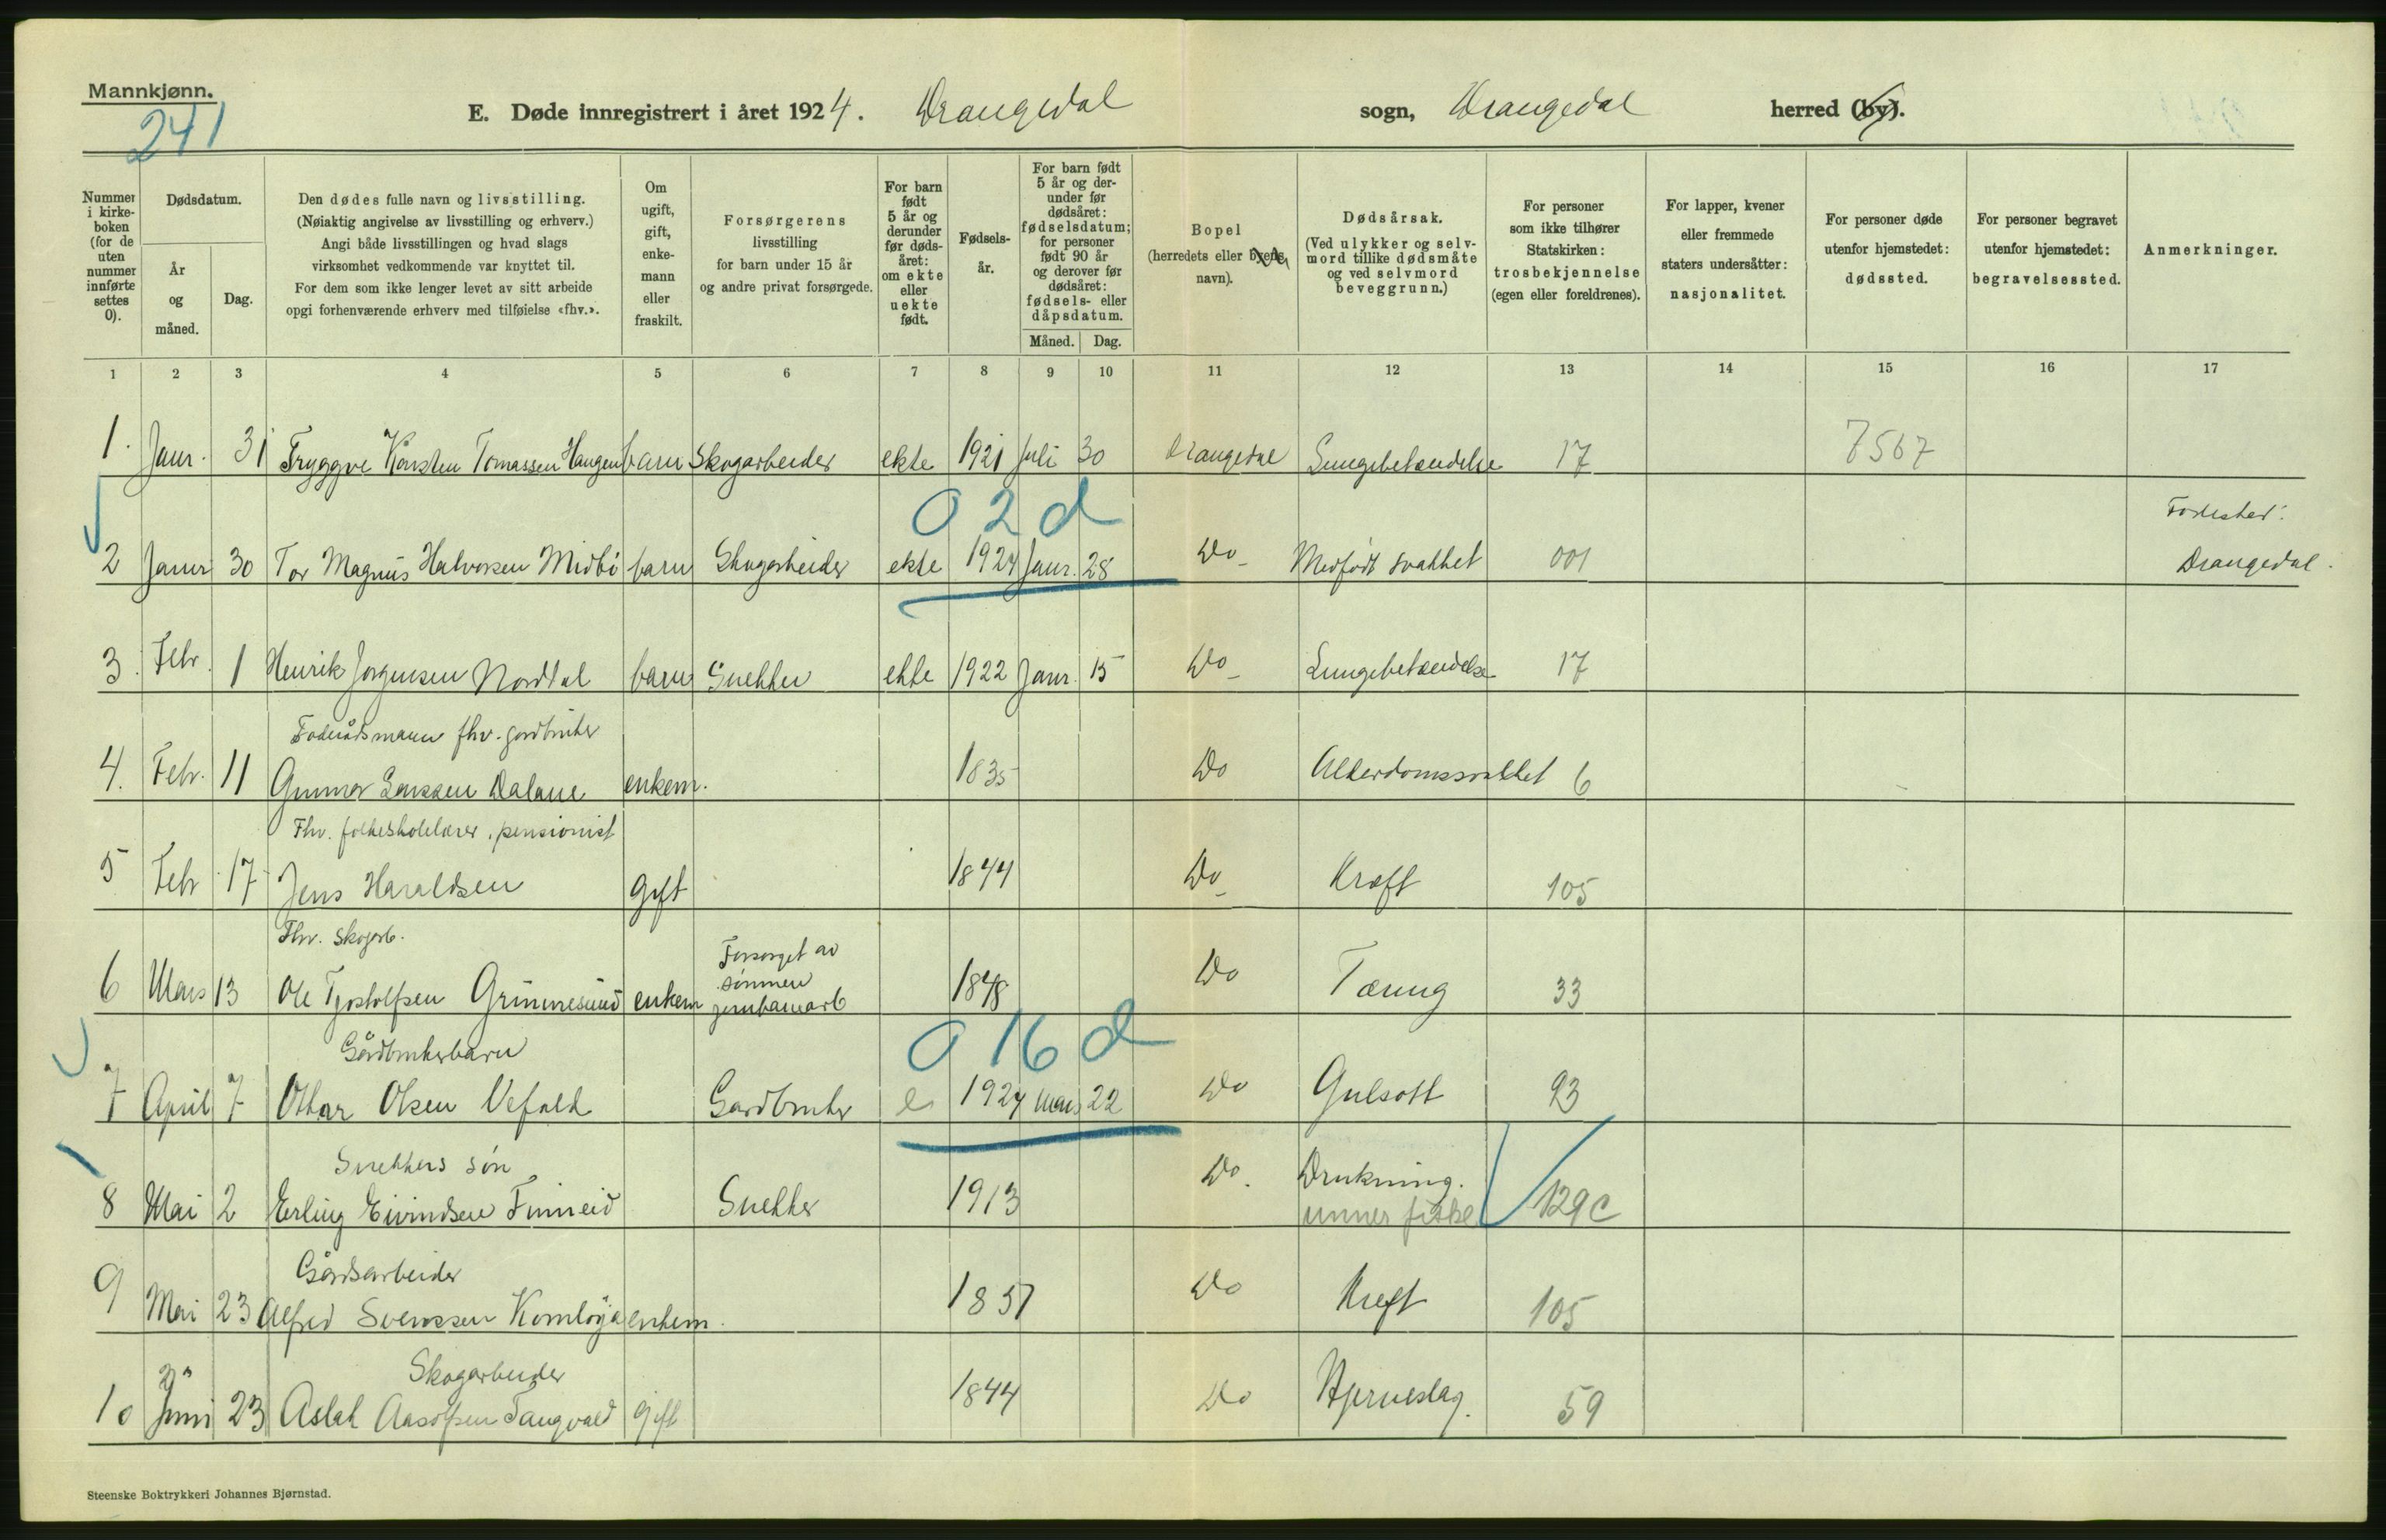 Mannkjønn.
241
E. Døde innregistrert i året 1924. Drangedal sogn, Drangedal herred (by).
Nummer i kirkeboken (for de uten nummer innførte settes 0).
Dødsdatum.
År og måned.
Dag.
Den dødes fulle navn og livsstilling.
(Nøiaktig angivelse av livsstilling og erhverv.)
Angi både livsstillingen og hvad slags
virksomhet vedkommende var knyttet til.
For dem som ikke lenger levet av sitt arbeide
opgi forhenværende erhverv med tilføielse «fhv.».
Om ugift, gift, enkemann eller fraskilt.
Forsørgerens
livsstilling
for barn under 15 år
og andre privat forsørgede.
For barn født 5 år og derunder før dødsåret: om ekte eller uekte født.
Fødselsår.
For barn født 5 år og derunder før dødsåret: fødselsdatum; for personer født 90 år og derover før dødsåret: fødsels- eller dåpsdatum.
Måned. Dag.
Bopel
(herredets eller byens navn).
Dødsårsak.
(Ved ulykker og selvmord tillike dødsmåte og ved selvmord beveggrunn.)
For personer som ikke tilhører Statskirken: trosbekjennelse (egen eller foreldrenes).
For lapper, kvener eller fremmede staters undersåtter: nasjonalitet.
For personer døde utenfor hjemstedet: dødssted.
For personer begravet utenfor hjemstedet: begravelsessted.
Anmerkninger.
1 2 3 4 5 6 7 8 9 10 11 12 13 14 15 16 17
1. Janr. 31 Tryggve Karsten Tomassen Haugen barn Skogarbeider ekte 1921 Juli 30 Drangedal Lungebetændelse 17 7567
02d
Fødested:
2 Janr 30 Tor Magnus Halvorsen Midbö barn Skogarbeider ekte 1924 Janr. 28 Do Medfødt svakhet 001 Drangedal.
3. Febr. 1 Henrik Jorgensen Nordal barn Snekker ekte 1922 Janr. 15 Do Lungebetændelse 17
Foderådsmann fhv. gardbruker
4. Febr. 11 Gunnar Larssen Dalane enkem. 1835 Do Alderdomssvakhet 6
Fhv. folkeskolelærer, pensionist
5 Febr 17 Jens Haraldsen gift 1844 Do Kræft 105
Fhv. Skogarb.
Forsørget av
sønnen
6 Mars 13 Ole Tjostolfsen Grimmesund enkem jernbanearb 1848 Do Tæring 33
Gårdbrukerbarn
016d
7 April 7 Ottar Olsen Vefald Gardbruker e 1924 Mars 22 Do Gulsott 93
Snekkers sön
8 Mai 2 Erling Eivindsen Finneid Snekker 1913 Do. Drukning.
unner fiske 129c
Gårdsarbeider
9 Mai 23 Alfred Svenssen enkem. 1857 Do Kreft 105
Skogarbeider
10 Juni 23 Aslak Aasolfsen Tangvald gift 1844 Do Hjerneslag. 59
Steenske Boktrykkeri Johannes Bjørnstad.